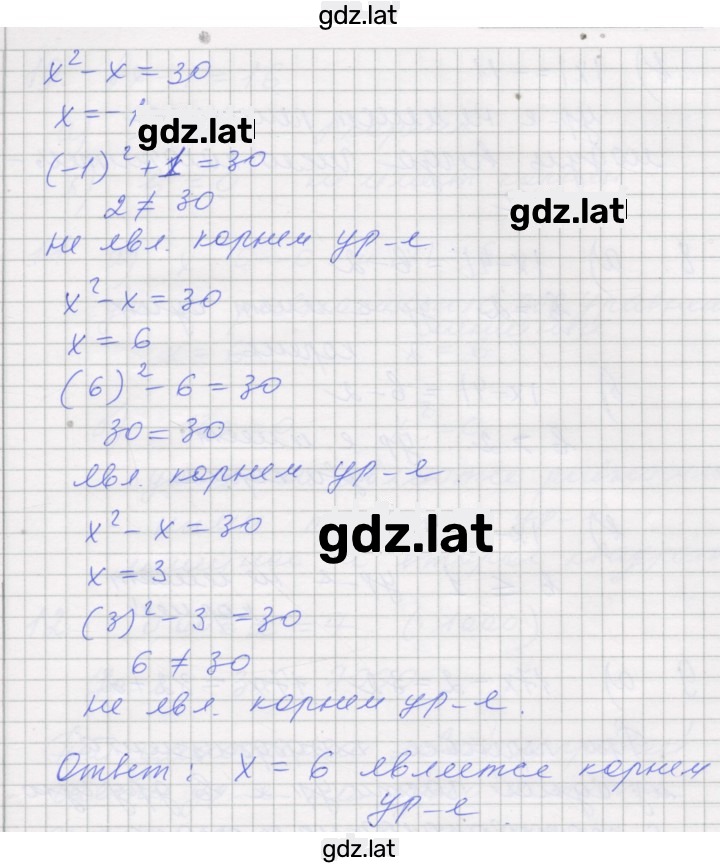 gdz.lat
x² - x = 30
x = -1
gdz.lat
(-1)² + 1 = 30
2 ≠ 30
gdz.lat
не явл. корнем ур-е
x² - x = 30
x = 6
(6)² - 6 = 30
30 = 30
явл. корнем ур-е.
x² - x = 30
gdz.lat
x = 3
(3)² - 3 = 30
6 ≠ 30
не явл. корнем ур-е.
Ответ: x = 6 является корнем
ур-е.
gdz.lat